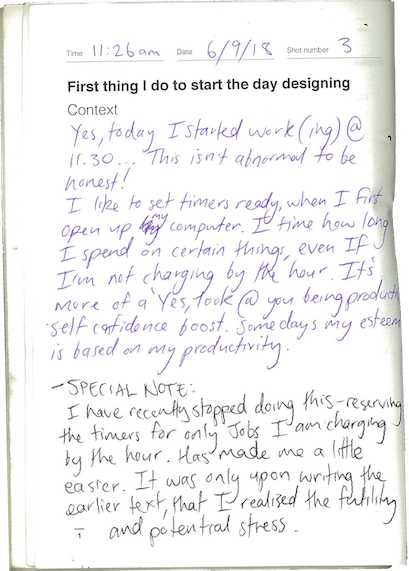 Time 11:26am Date 6/9/18 Shot number 3
First thing I do to start the day designing
Context
Yes, today I started work(ing) @
11.30... This isn't abnormal to be
honest!
I like to set timers ready, when I first
open up my computer. I time how long
I spend on certain things, even If
I'm not charging by the hour. It's
more of a 'Yes, look @ you being producti
self confidence boost. Somedays my esteem
is based on my productivity.
- SPECIAL NOTE:
I have recently stopped doing this - reserving
the timers for only Jobs I am charging
by the hour. Has made me a little
easier. It was only upon writing the
earlier text, that I realised the futility
and potential stress.